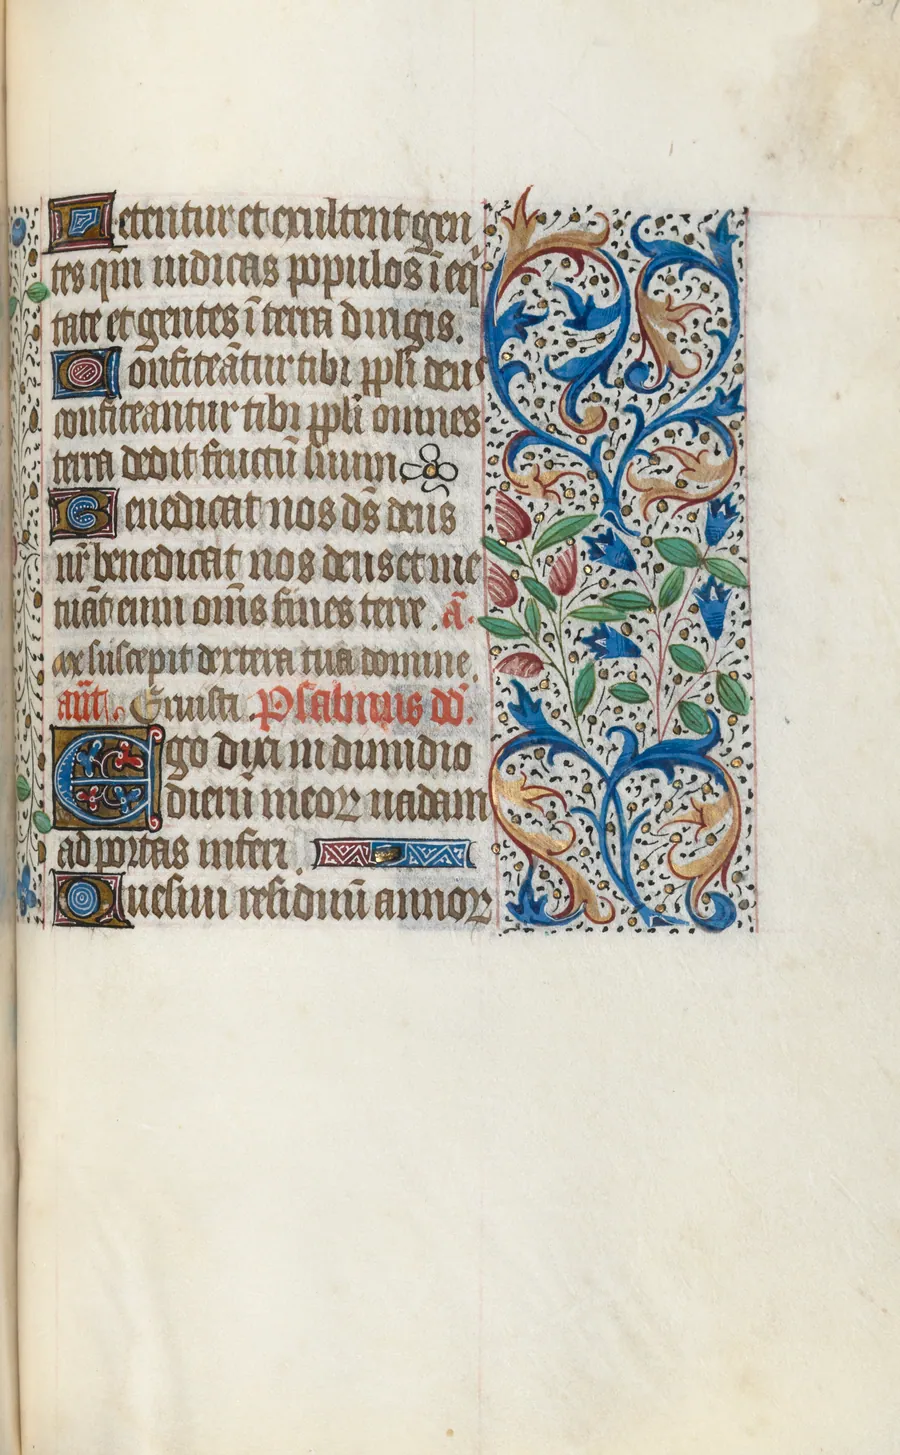 Letentur et exultent gen
tes qm̄ iudicas populos ī eq̄
tate et gentes ī terra dirigis.
Confiteātur tibi ppl̄i deus
confiteantur tibi ppl̄i omnes
terra dedit fructū suum
Benedicat nos dn̄s deus
nr̄ benedicat nos deus et me
tuāt eum om̄s fines terre. ā.
e suscepit dextera tua domine.
ant̄. Eruisti. Psalmus dd̄.
Ego dixi in dimidio
dierū meoꝝ uadam
ad portas inferi
Quesiui residuū annoꝝ